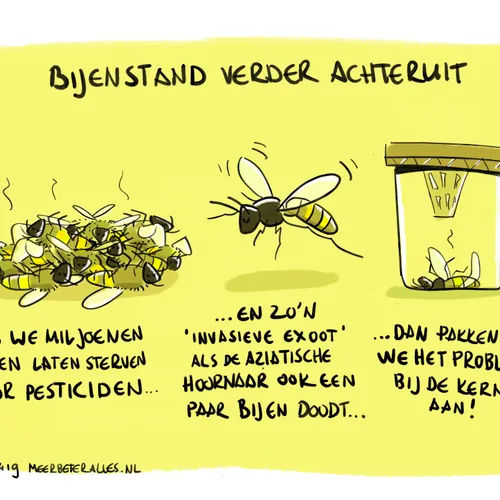 BIJENSTAND VERDER ACHTERUIT
WE MILJOENEN
LATEN STERVEN
PESTICIDEN...
...EN ZO'N
'INVASIEVE EXOOT'
ALS DE AZIATISCHE
HOORNAAR OOK EEN
PAAR BIJEN DOODT...
...DAN PAKKEN
WE HET
BIJ DE KERN
AAN!
MEERBETERALLES.NL